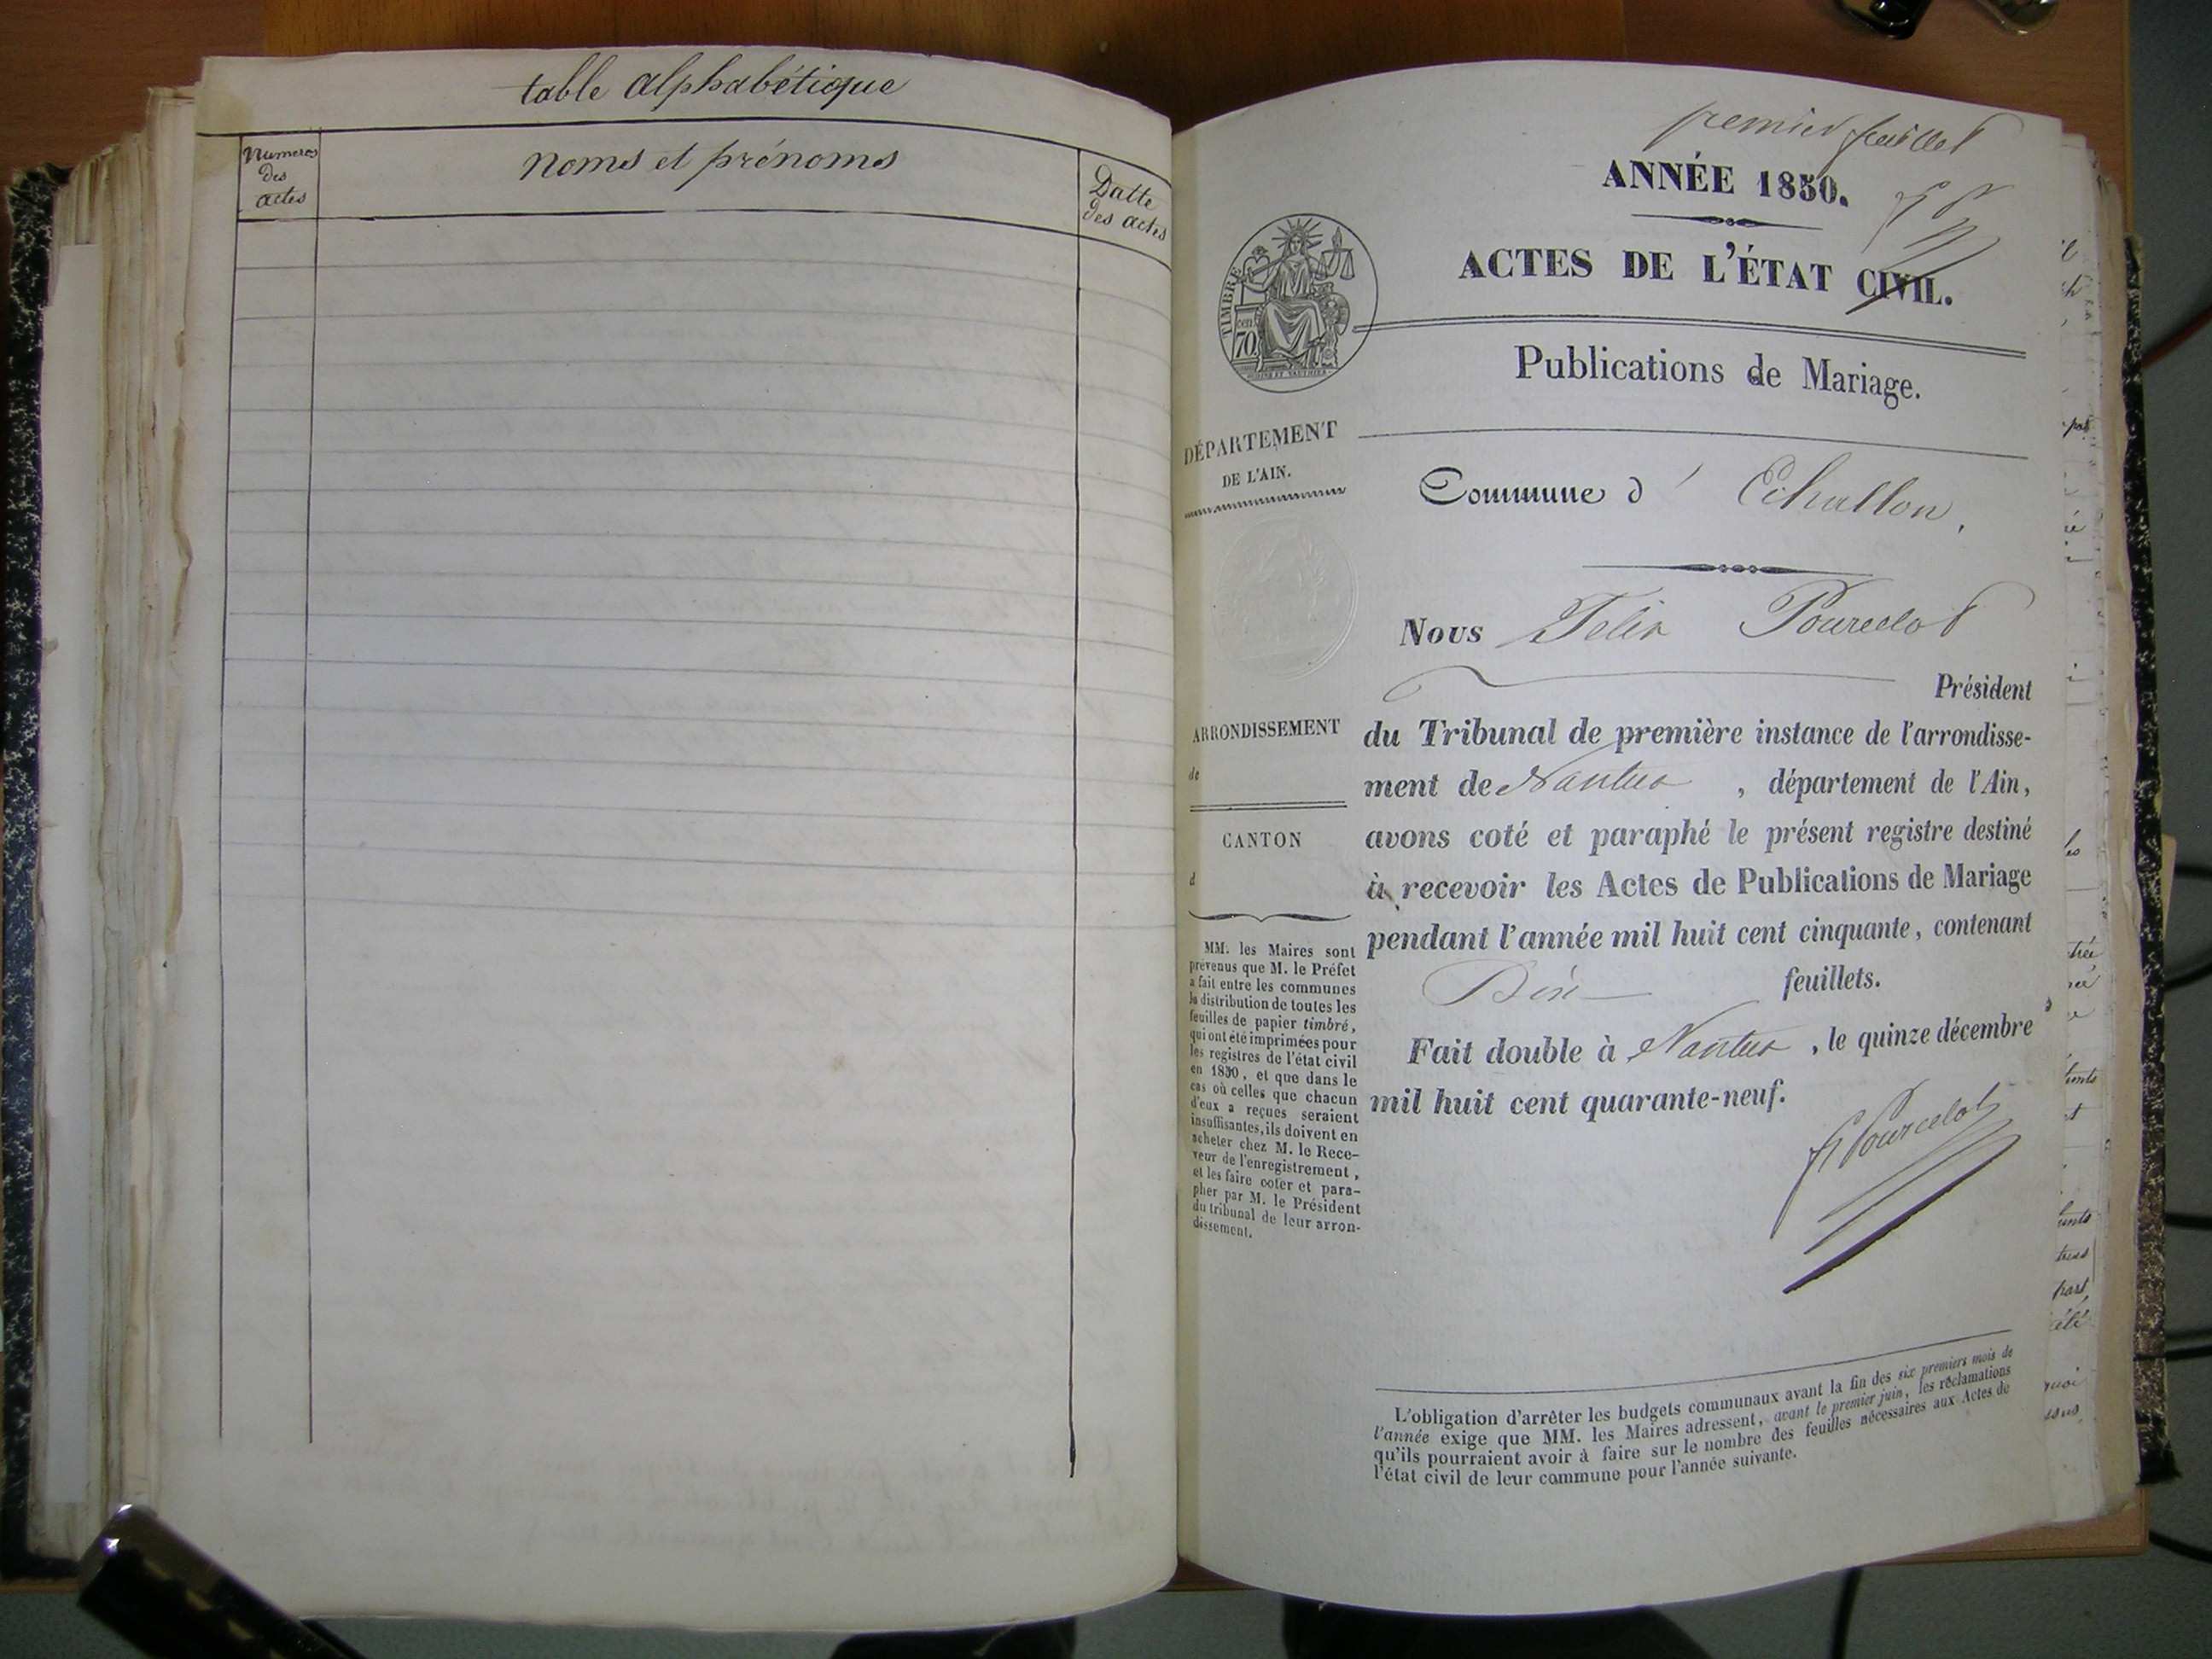 table alphabétique
Numeros
des
actes
noms et prénoms
Datte
des actes
premier feuillet
ANNÉE 1850.
ACTES DE L'ÉTAT CIVIL.
TIMBRE
cen
70
Publications de Mariage.
DÉPARTEMENT
DE L'AIN.
Commune d' Echallon.
Nous Felix Pourcelot
Président
ARRONDISSEMENT
de
CANTON
d
du Tribunal de première instance de l'arrondisse-
ment de Nantua , département de l'Ain,
avons coté et paraphé le présent registre destiné
à recevoir les Actes de Publications de Mariage
pendant l'année mil huit cent cinquante, contenant
feuillets.
Fait double à Nantua , le quinze décembre
mil huit cent quarante-neuf.
F Pourcelot
MM. les Maires sont
prévenus que M. le Préfet
a fait entre les communes
la distribution de toutes les
feuilles de papier timbré,
qui ont été imprimées pour
les registres de l'état civil
en 1850, et que dans le
cas où celles que chacun
d'eux a reçues seraient
insuffisantes, ils doivent en
acheter chez M. le Rece-
veur de l'enregistrement,
et les faire coter et para-
pher par M. le Président
du tribunal de leur arron-
dissement.
L'obligation d'arrêter les budgets communaux avant la fin des six premiers mois de
l'année exige que MM. les Maires adressent, avant le premier juin, les réclamations
qu'ils pourraient avoir à faire sur le nombre des feuilles nécessaires aux Actes de
l'état civil de leur commune pour l'année suivante.